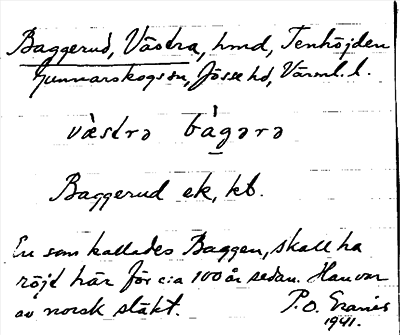 Baggerud, Västra, hmd, Tenhöjden
Gunnarskogs sn, Jösse hd, Värml. l.
væ̀strə bàgərə
Baggerud ek, kb.
En som kallades Baggen, skall ha
röjd här för c:a 100 år sedan. Han var
av norsk släkt. P.O.
1941.